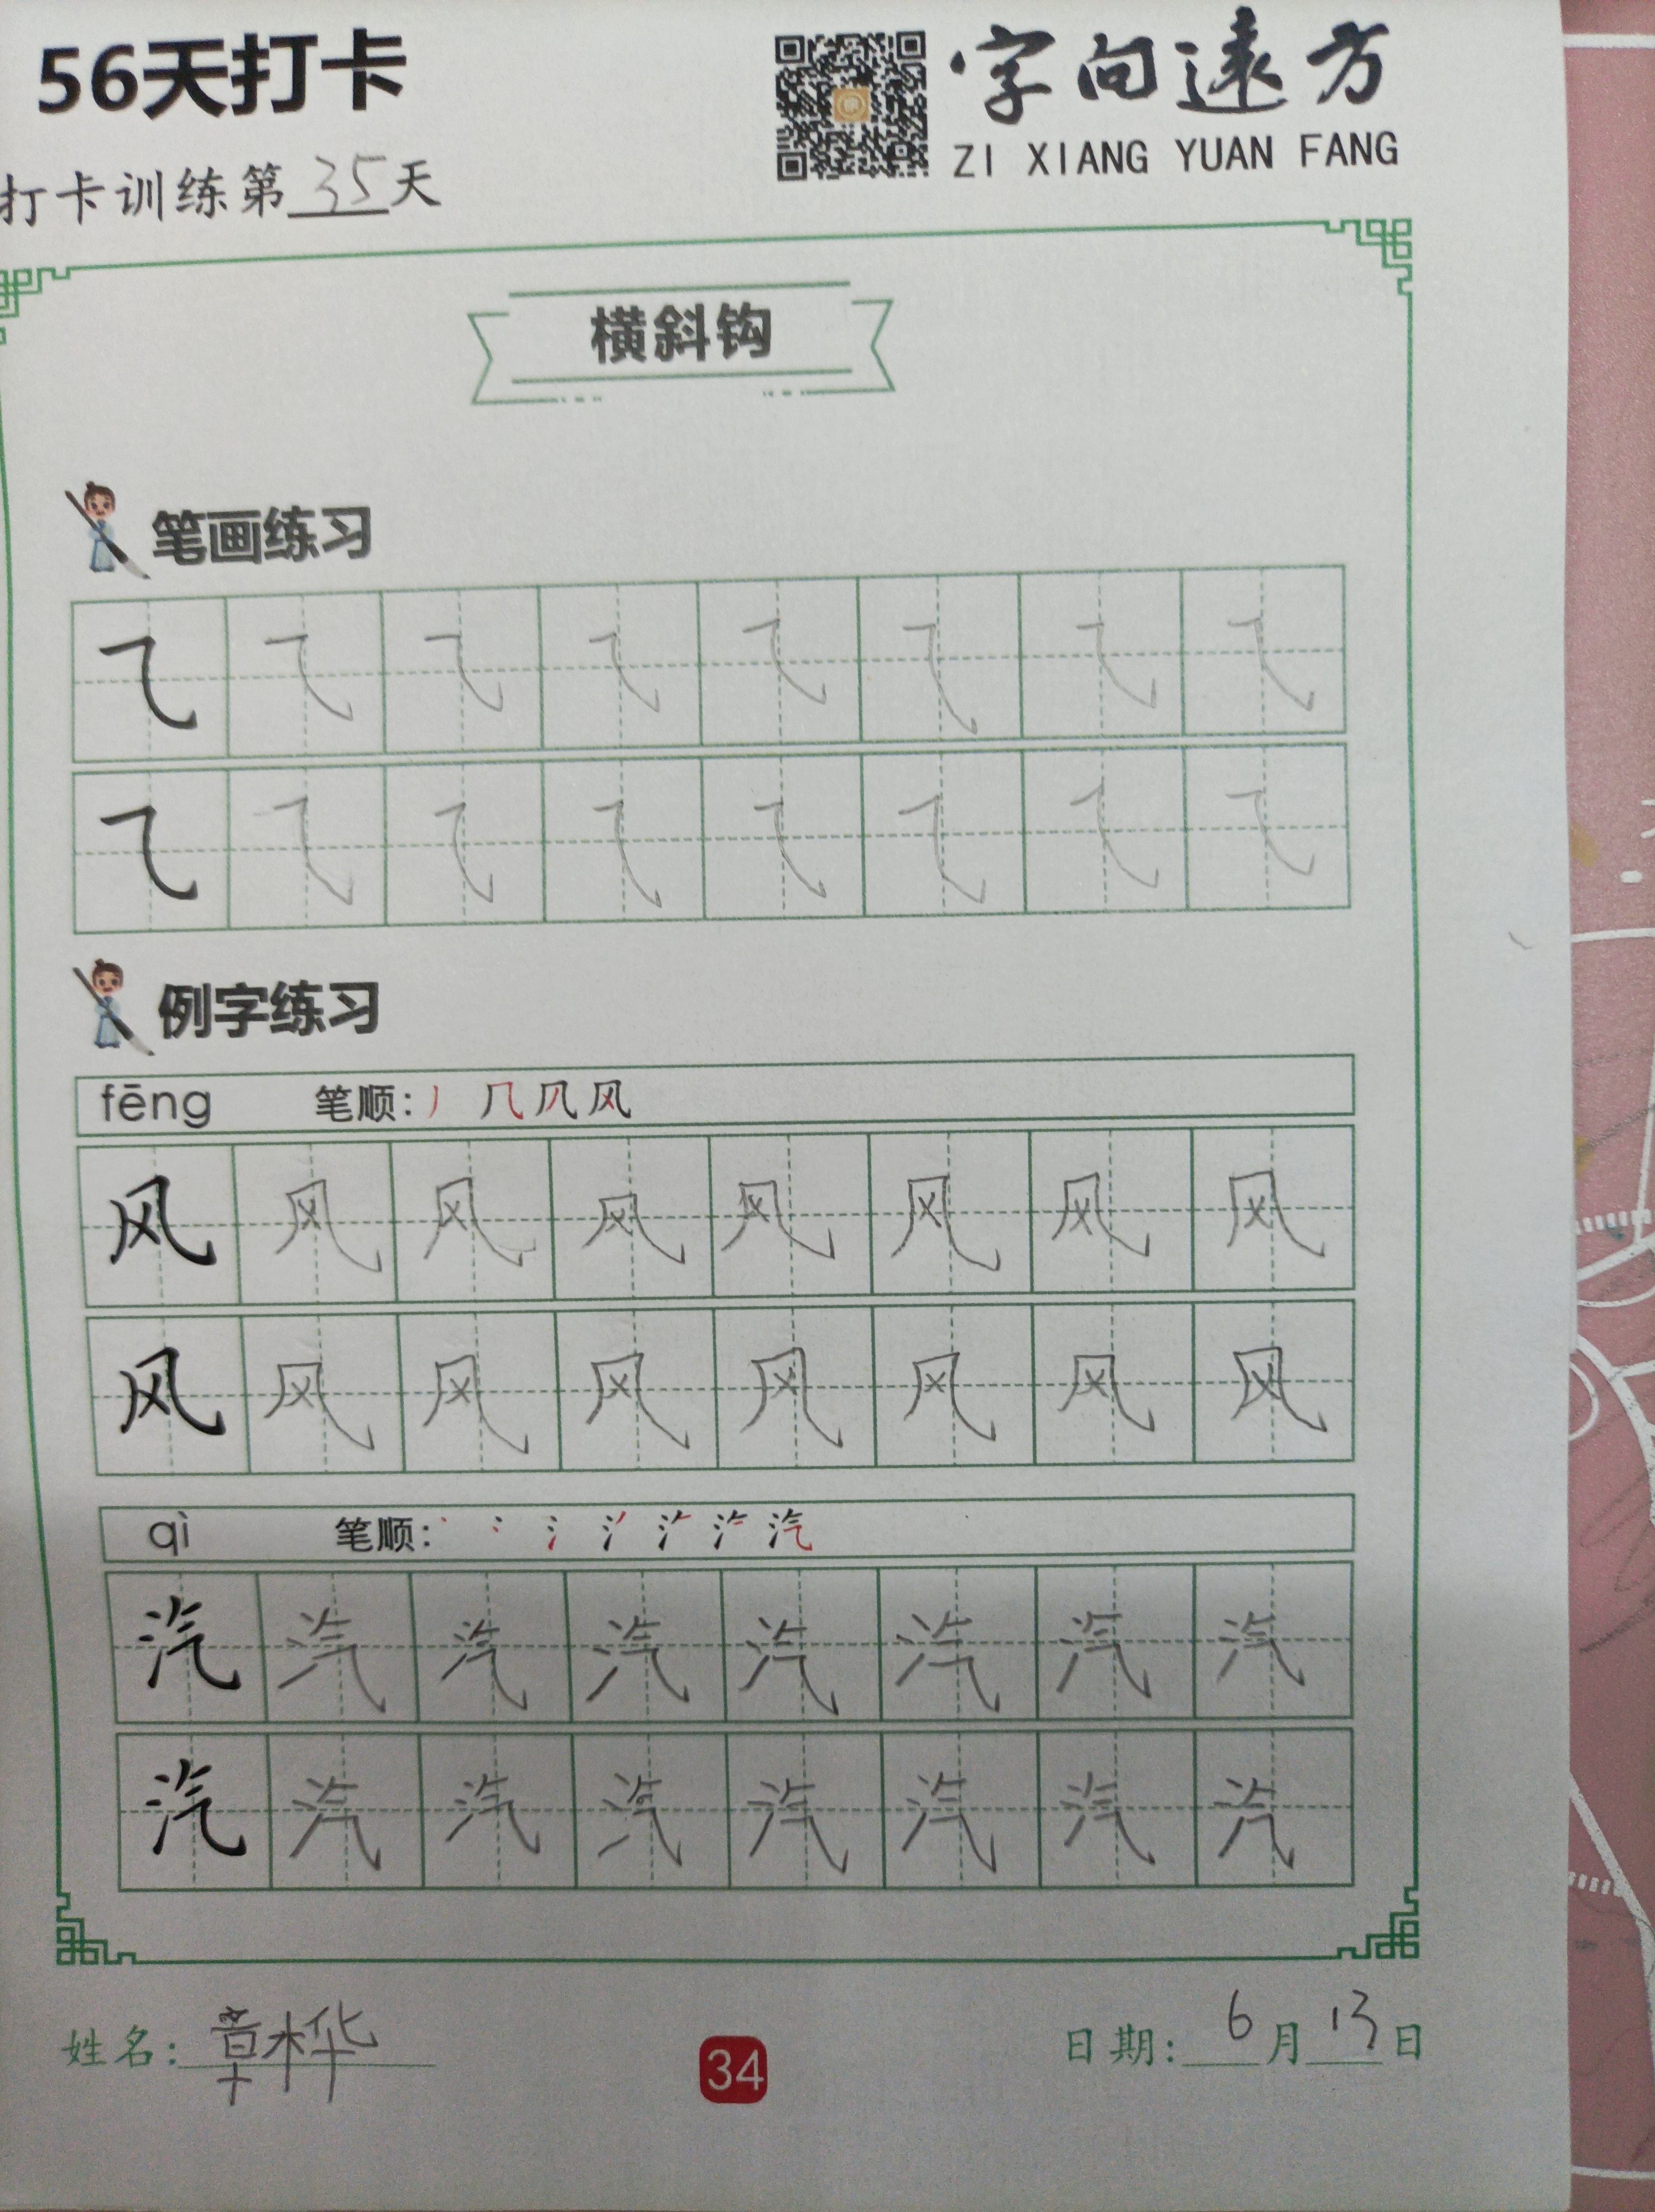 56天打卡
字向遠方
ZI XIANG YUAN FANG
打卡训练第35天
横斜钩
笔画练习
㇈ ㇈ ㇈ ㇈ ㇈ ㇈ ㇈ ㇈
㇈ ㇈ ㇈ ㇈ ㇈ ㇈ ㇈ ㇈
例字练习
fēng 笔顺: 丿 几 凡 风
风 风 风 风 风 风 风 风
风 风 风 风 风 风 风 风
qì 笔顺: 汽
汽 汽 汽 汽 汽 汽 汽 汽
汽 汽 汽 汽 汽 汽 汽 汽
姓名: 章桦
34
日期: 6月13日